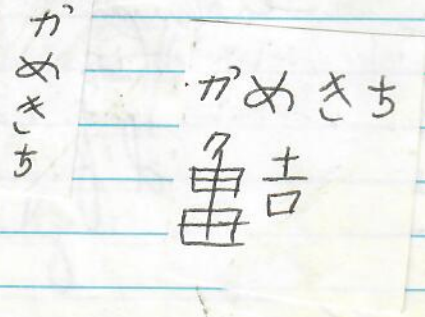 かめきち
かめきち
亀吉